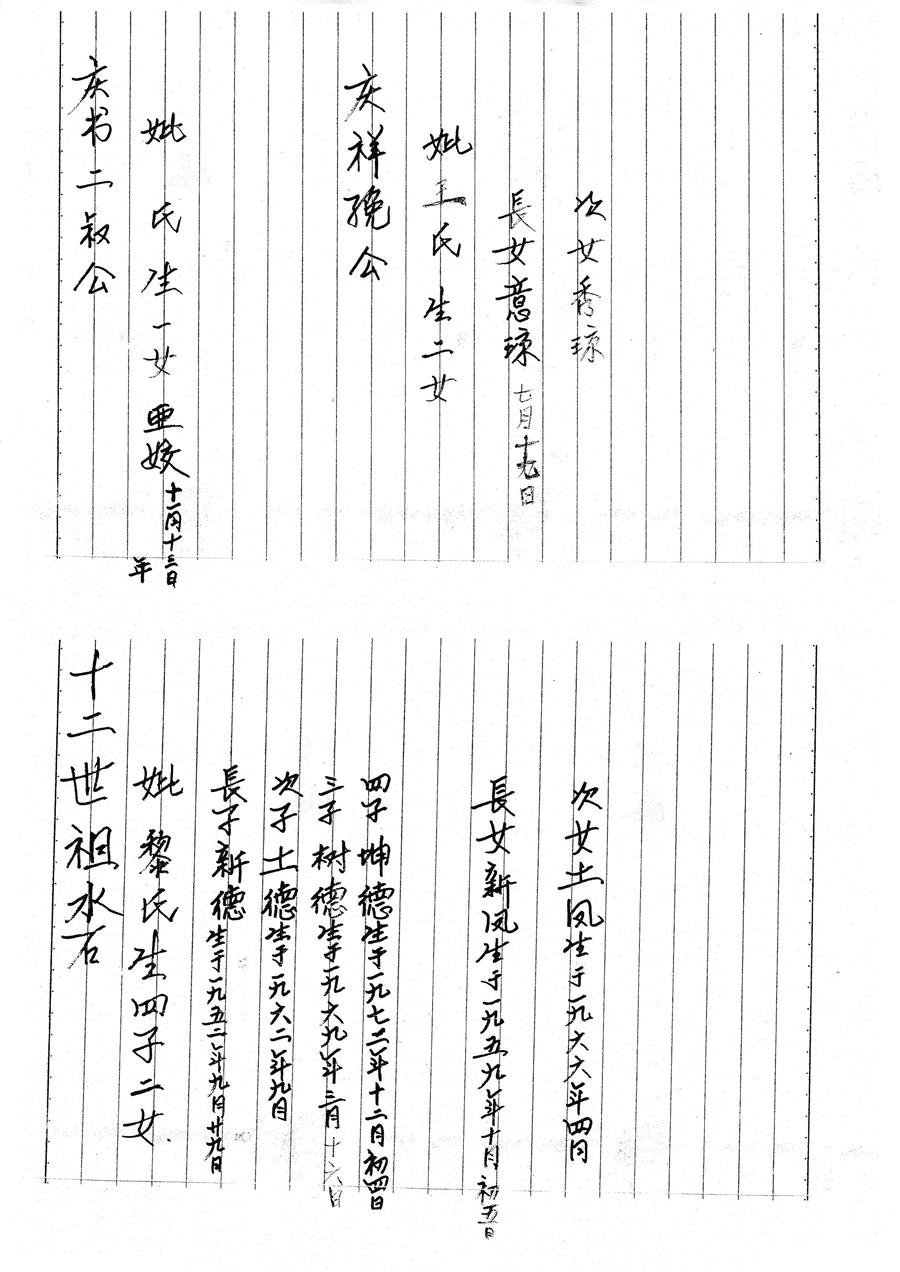 庆书二叔公
妣 氏生一女亜姣十一月十三日
年
庆祥晚公
妣王氏生二女
長女意琼七月十九日
次女秀琼
十二世祖水石
妣黎氏生四子二女
長子新德生于一九五二年九月廿九日
次子土德生于一九六二年九月
三子树德生于一九六九年三月十六日
四子坤德生于一九七二年十二月初四日
長女新凤生于一九五九年十月初五日
次女土凤生于一九六六年四月